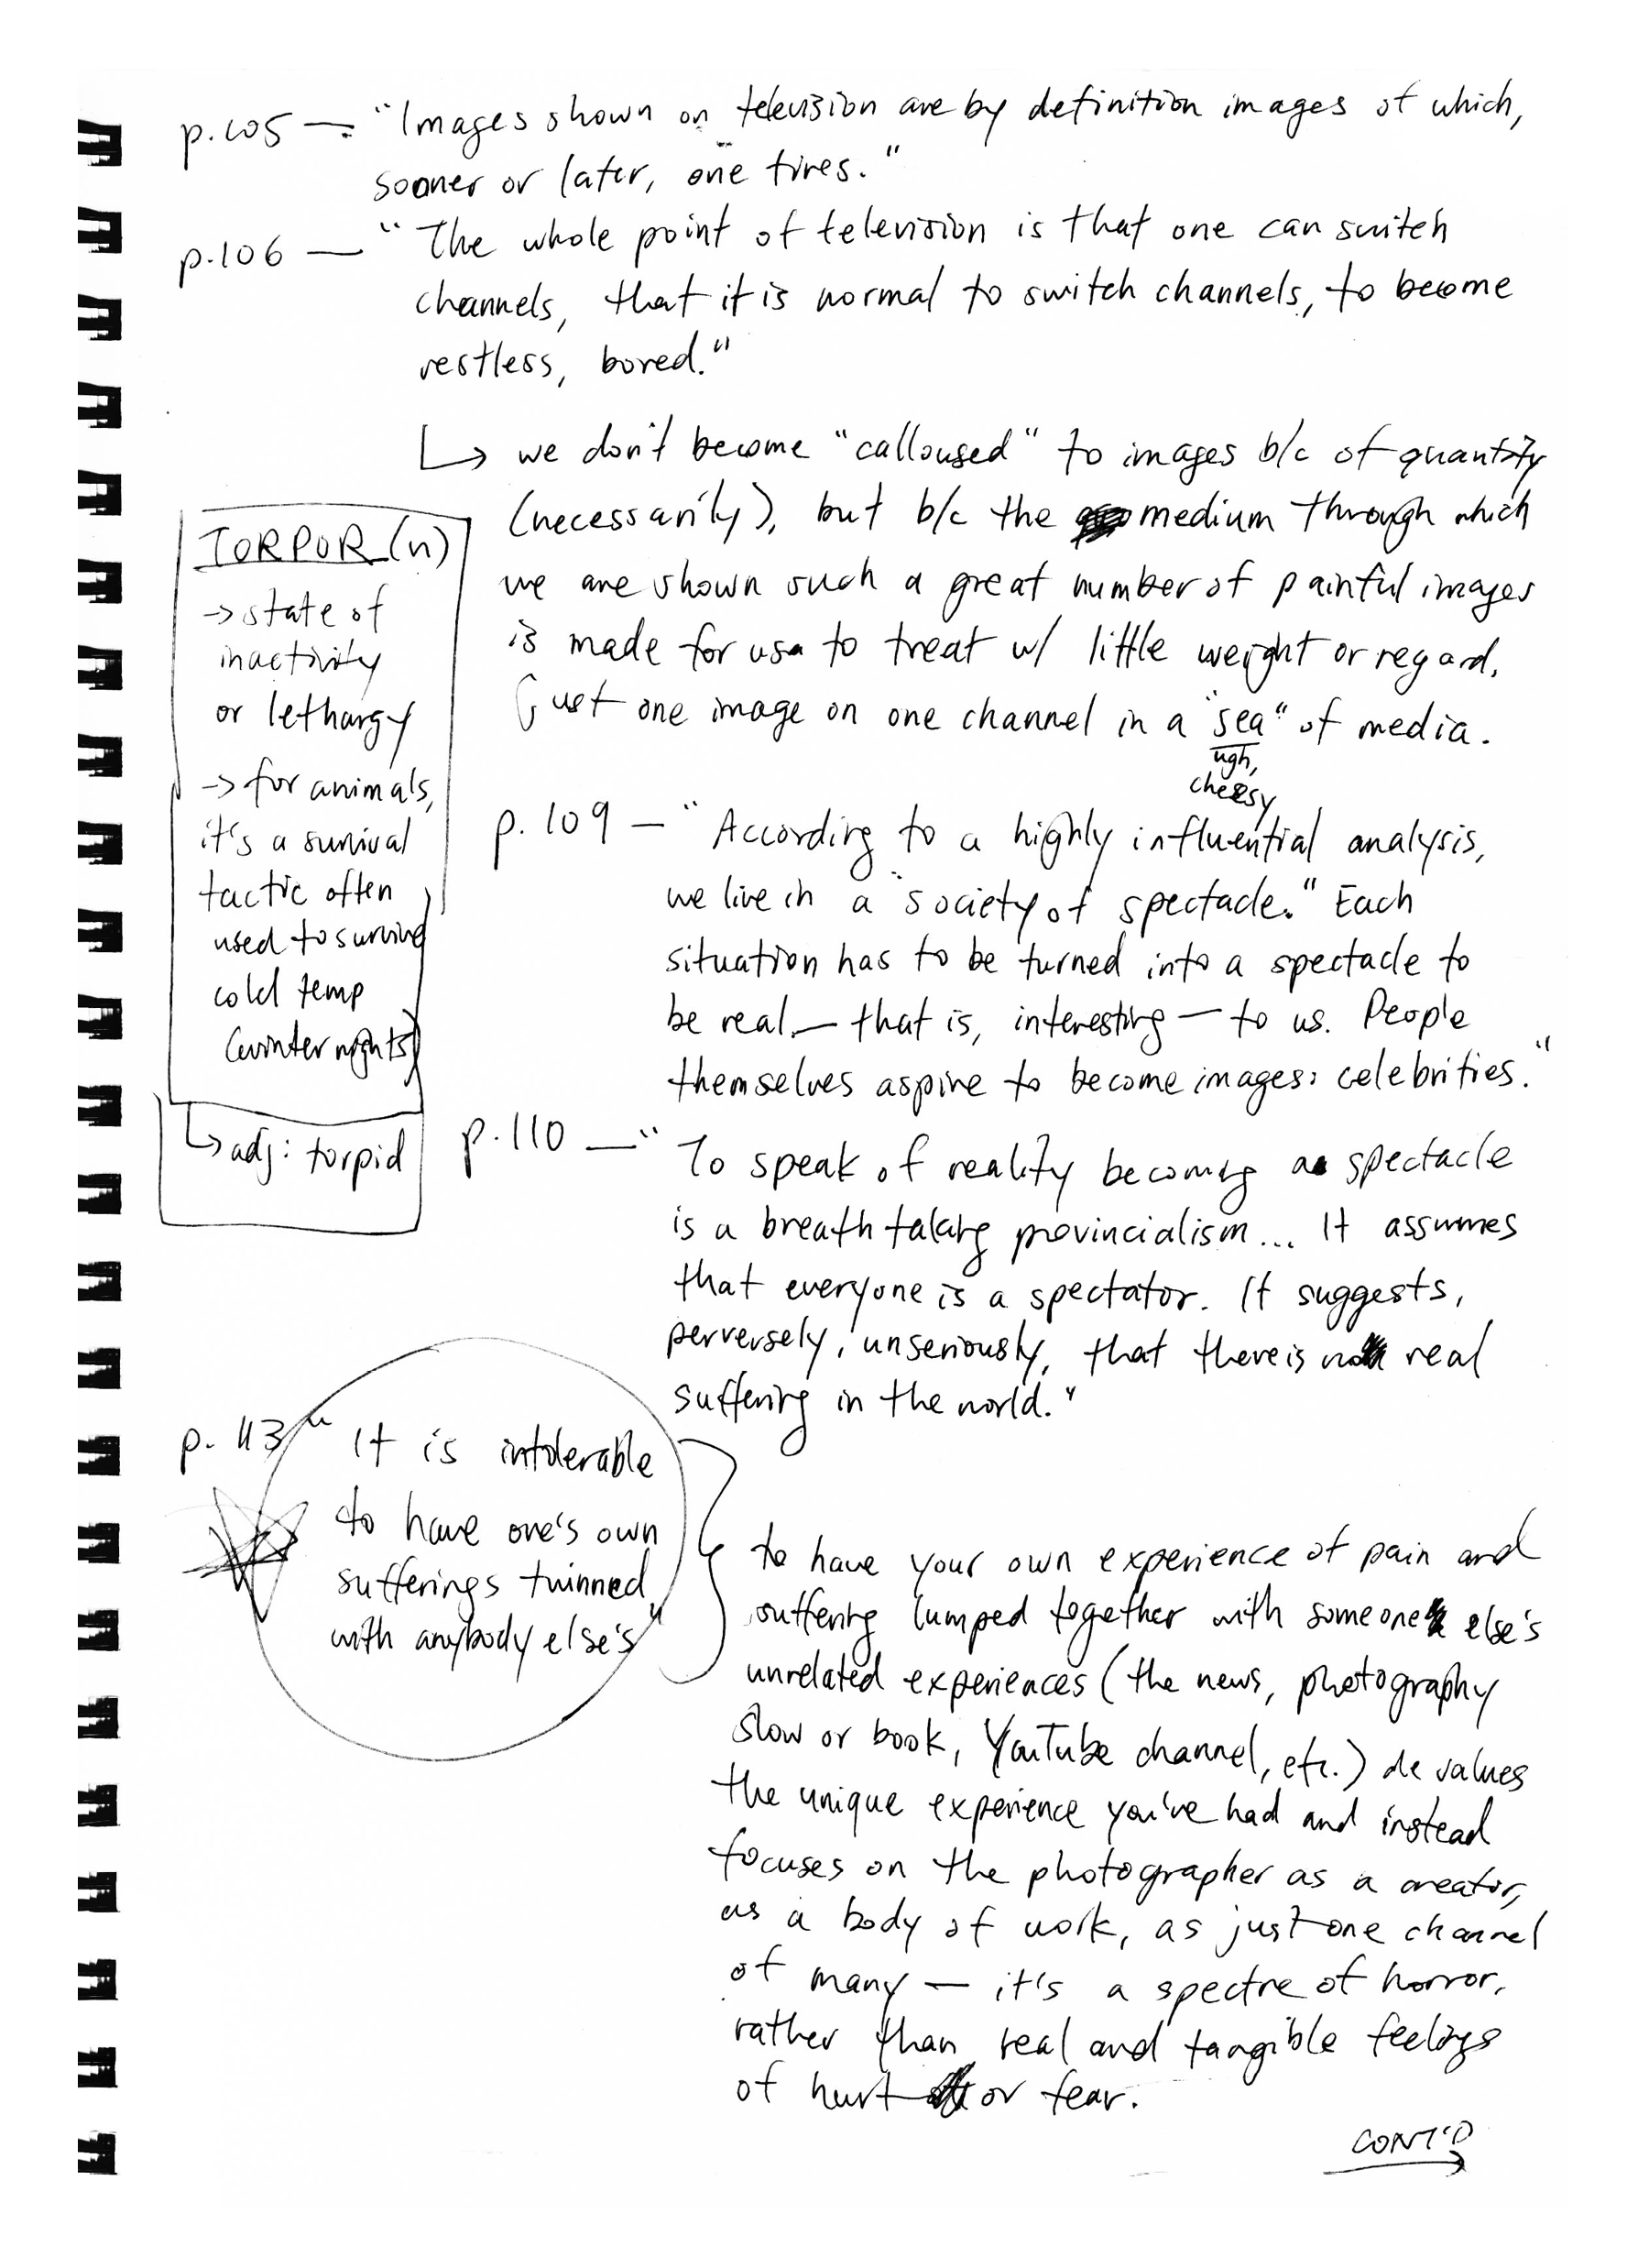 p.105 — "Images shown on television are by definition images of which,
sooner or later, one tires."
p.106 — "The whole point of television is that one can switch
channels, that it is normal to switch channels, to become
restless, bored."
↳ we don't become "calloused" to images b/c of quantity
(necessarily), but b/c the medium through which
we are shown such a great number of painful images
is made for us to treat w/ little weight or regard.
(just one image on one channel in a "sea" of media.
ugh,
cheesy
TORPOR (n)
→ state of
inactivity
or lethargy
→ for animals,
it's a survival
tactic often
used to survive
cold temp
(winter nights)
↳ adj: torpid
p. 109 — "According to a highly influential analysis,
we live in a "society of spectacle." Each
situation has to be turned into a spectacle to
be real — that is, interesting — to us. People
themselves aspire to become images: celebrities."
p.110 — "To speak of reality becoming a spectacle
is a breathtaking provincialism... It assumes
that everyone is a spectator. It suggests,
perversely, unseriously, that there is no real
suffering in the world."
p. 113 "It is intolerable
to have one's own
sufferings twinned
with anybody else's"
to have your own experience of pain and
suffering lumped together with someone else's
unrelated experiences (the news, photography
slow or book, YouTube channel, etc.) devalues
the unique experience you've had and instead
focuses on the photographer as a creator,
as a body of work, as just one channel
of many — it's a spectre of horror,
rather than real and tangible feelings
of hurt or fear.
CONT'D →